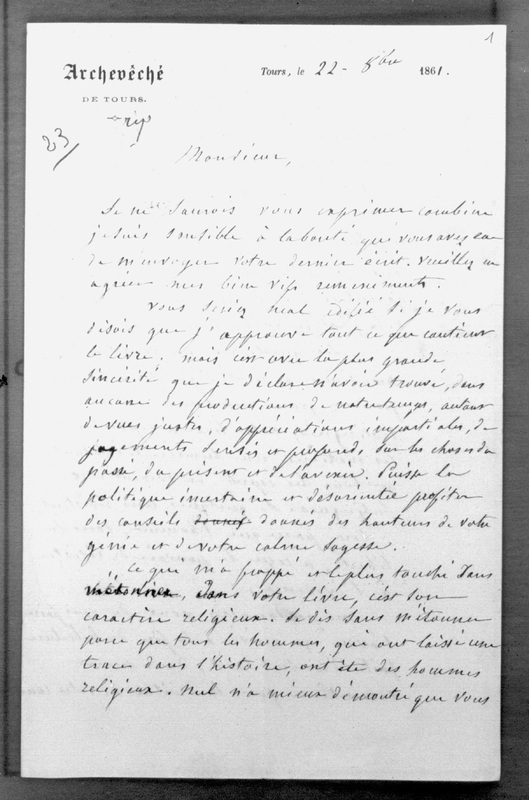 1
Archevêché
DE TOURS.
Tours, le 22 - 8bre 1861.
rép
23/
Monsieur,
Je ne saurois vous exprimer combien
je suis sensible à la bonté que vous avez eue
de m'envoyer votre dernier écrit. Veuillez en
agréer mes bien vifs remerciments.
Vous seriez mal édifié si je vous
disois que j'approuve tout ce que contient
le livre; mais c'est avec la plus grande
sincérité que je déclare n'avoir trouvé, dans
aucune des productions de notre temps, autant
de vues justes, d'appréciations impartiales, de
jugements sensés et profonds, sur les choses du
passé, du présent et de l'avenir. Puisse la
politique incertaine et désorientée profiter
des conseils donnés des hauteurs de votre
génie et de votre calme sagesse.
Ce qui m'a frappé et le plus touché dans
dans votre livre, c'est son
caractère religieux. Je dis sans m'étonner
parce que tous les hommes, qui ont laissé une
trace dans l'histoire, ont été des hommes
religieux. Nul n'a mieux démontré que vous